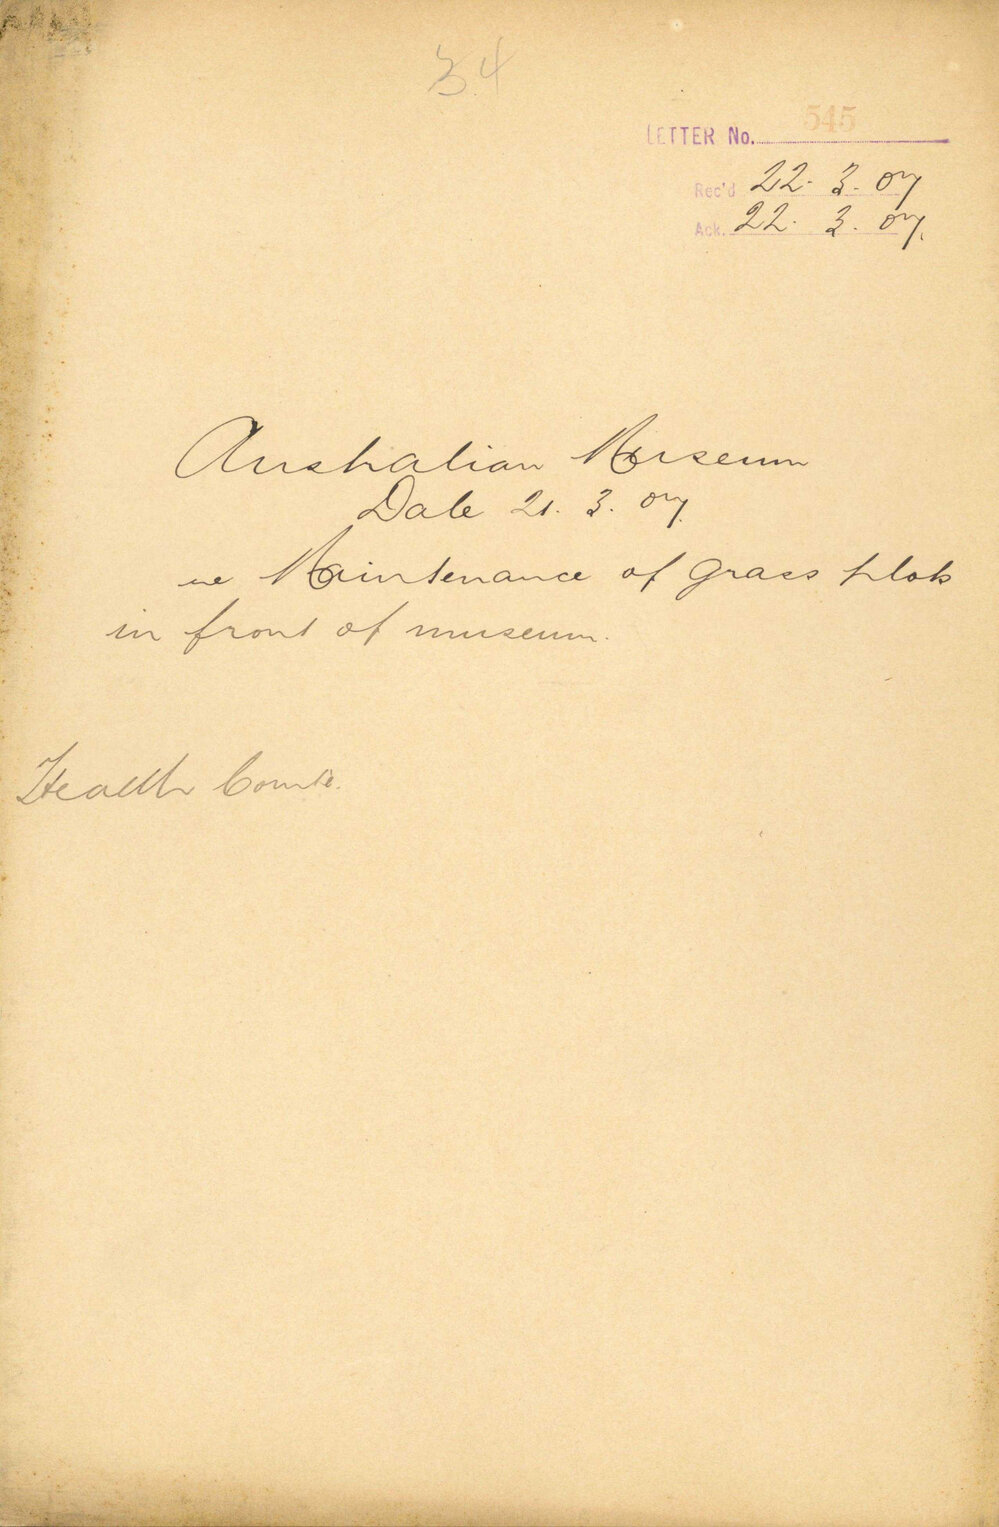 34
LETTER No. 545
Rec'd 22. 3. 07
Ack. 22. 3. 07.
Australian Museum
Date 21. 3. 07.
re Maintenance of grass plots
in front of museum.
Health Comte.